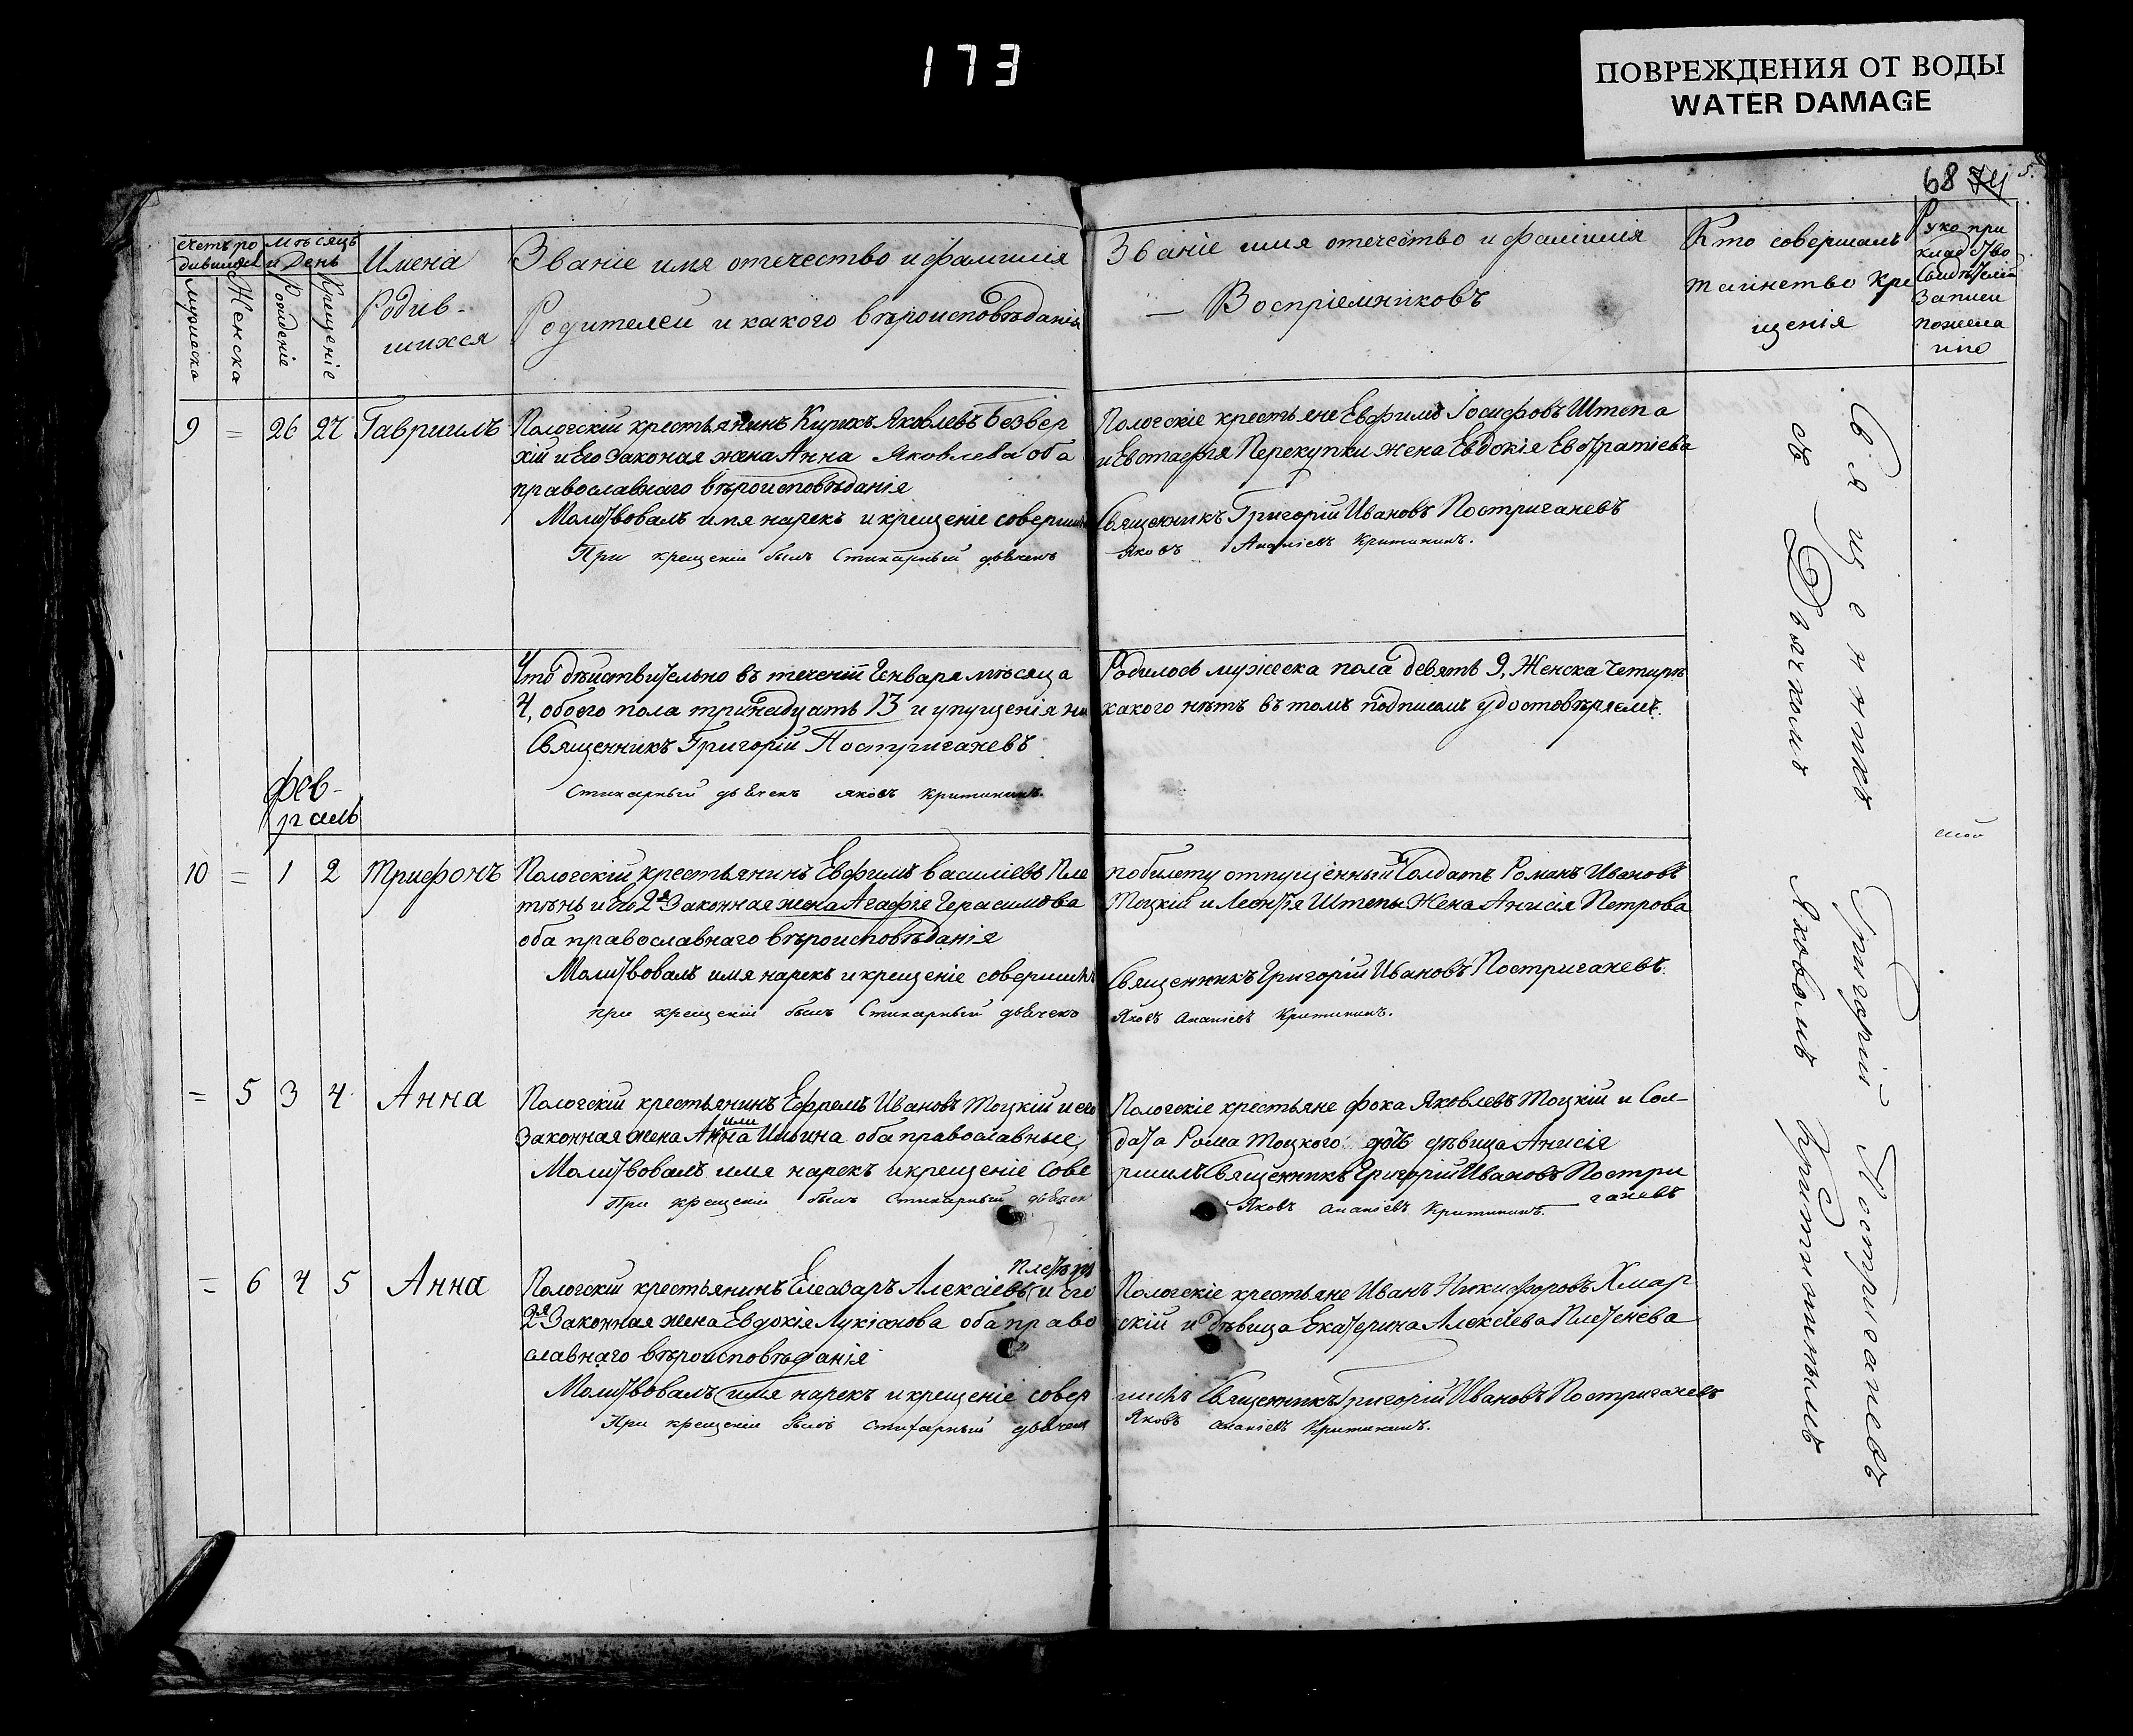 173
ПОВРЕЖДЕНИЯ ОТ ВОДЫ
WATER DAMAGE
68 74
Счетъ ро
дившихся
Мужеска
Женска
Мѣсяцъ
и День
Рождение
Крещеніе
Имена
Родив-
шихся
Званіе имя отечество и фамилія
Родителей и какого вѣроисповѣданія
Званіе имя отечество и фамилія
— Воспріемниковъ
Кто совершалъ
таинство кре
щенія
Руко при
кладство
свидѣтелей
записи
пожела
нію
9 = 26 27 Гавриилъ
Пологскій крестьянинъ Кирикъ Яковлевъ Безвер
хій и Его Законая жена Анна Яковлева оба
православнаго вѣроисповѣданія
Молитвовалъ имя нарекъ и крещеніе совершилъ
При крещеніи былъ Стихарный дьячекъ
Пологскіе крестьяне Евфимъ Іосифовъ Штепа
и Евстафія Перекупки жена Евдокія Евстратіева
Священникъ Григорій Ивановъ Постригачевъ
Яковъ Ананіевъ Критининъ.
Что дѣйствительно въ теченій Генваря мѣсяца
4, обоего пола тринадцать 13 и упущенія ни
Священникъ Григорій Постригачевъ
Стихарный дьячекъ Яковъ Критининъ.
Родилось мужеска пола девять 9, Женска четырѣ
какого нѣтъ въ томъ подписомъ удостовѣряемъ.
фев-
раль
10 = 1 2 Трифонъ
Пологскій крестьянинъ Евфимъ Василіевъ Пле
тѣнь и Его 2я Законная жена Агафія Герасимова
оба православнаго вѣроисповѣданія
Молитвовалъ имя нарекъ и крещеніе совершилъ
при крещеніи былъ Стихарный дьячекъ
побилету отпущенный Солдатъ Романъ Ивановъ
Тоцкій и Леонтія Штепы Жена Анисія Петрова
Священникъ Григорій Ивановъ Постригачевъ.
Яковъ Ананіевъ Критининъ.
= 5 3 4 Анна
Пологскій крестьянинъ Ефремъ Ивановъ Тоцкій и его
Законная жена Анна Ильина оба православные,
Молитвовалъ имя нарекъ и крещеніе Сове
При крещеніи былъ Стихарный дьячек
Пологскіе крестьяне Фока Яковлевъ Тоцкій и Сол-
дата Рома Тоцкого дочь дѣвица Анисія
ршилъ Священникъ Григорій Ивановъ Постри
гачевъ
Яковъ Ананіевъ Критининъ.
= 6 4 5 Анна
Плетѣнь
Пологскій крестьянинъ Елеазаръ Алексіевъ и Его
2я Законная жена Евдокія Лукіанова оба право
славнаго вѣроисповѣданія
Молитвовалъ имя нарекъ и крещеніе совер
При крещеніи былъ Стихарный дьячек
Пологскіе крестьяне Иванъ Никифоровъ Хмар
скій и дѣвица Екатерина Алексіева Плетенева
шилъ Священникъ Григорій Ивановъ Постригачевъ
Яковъ Ананіевъ Критининъ.
Священникъ Григорій Постригачевъ
съ Дьячкомъ Яковомъ Критининымъ